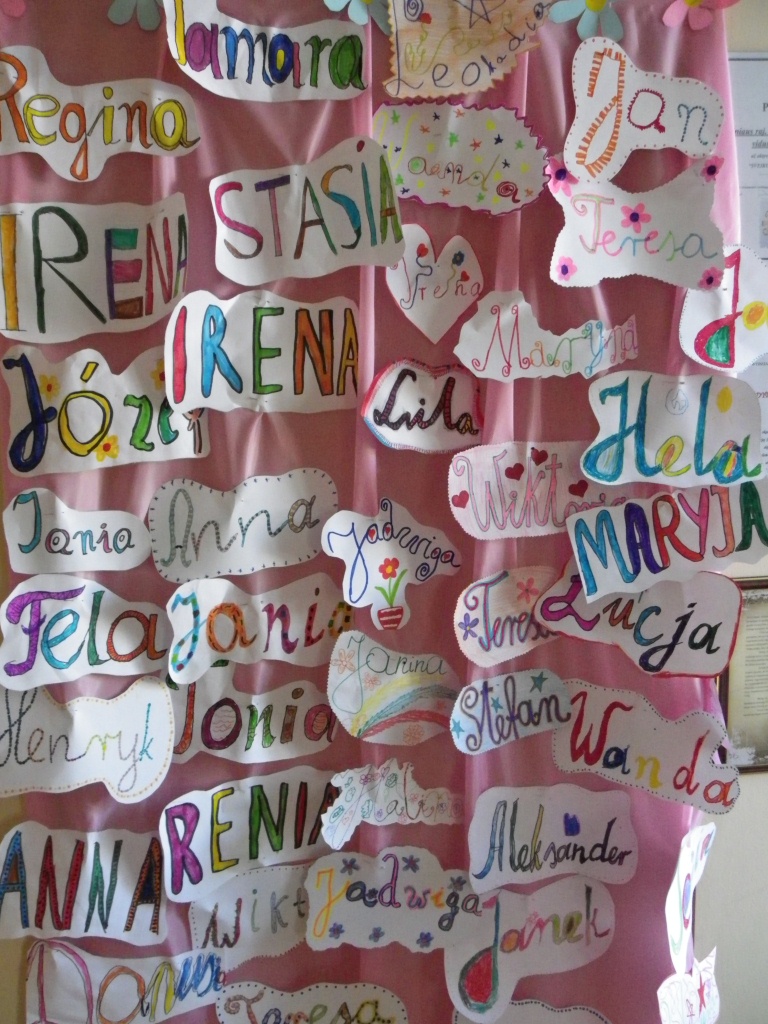 Tamara
Leokadia
Regina
Jan
Wanda
STASIA
Teresa
IRENA
Irena
IRENA
Maryna
Józe
Lila
Hela
Wikt
MARYJA
Jania
Anna
Jadwiga
Fela
Jania
Teresa
Łucja
Janina
Henryk
Tonia
Stefan
Wanda
RENIA
Aleksander
ANNA
Wikt
Jadwiga
Janek
Danu
Teresa